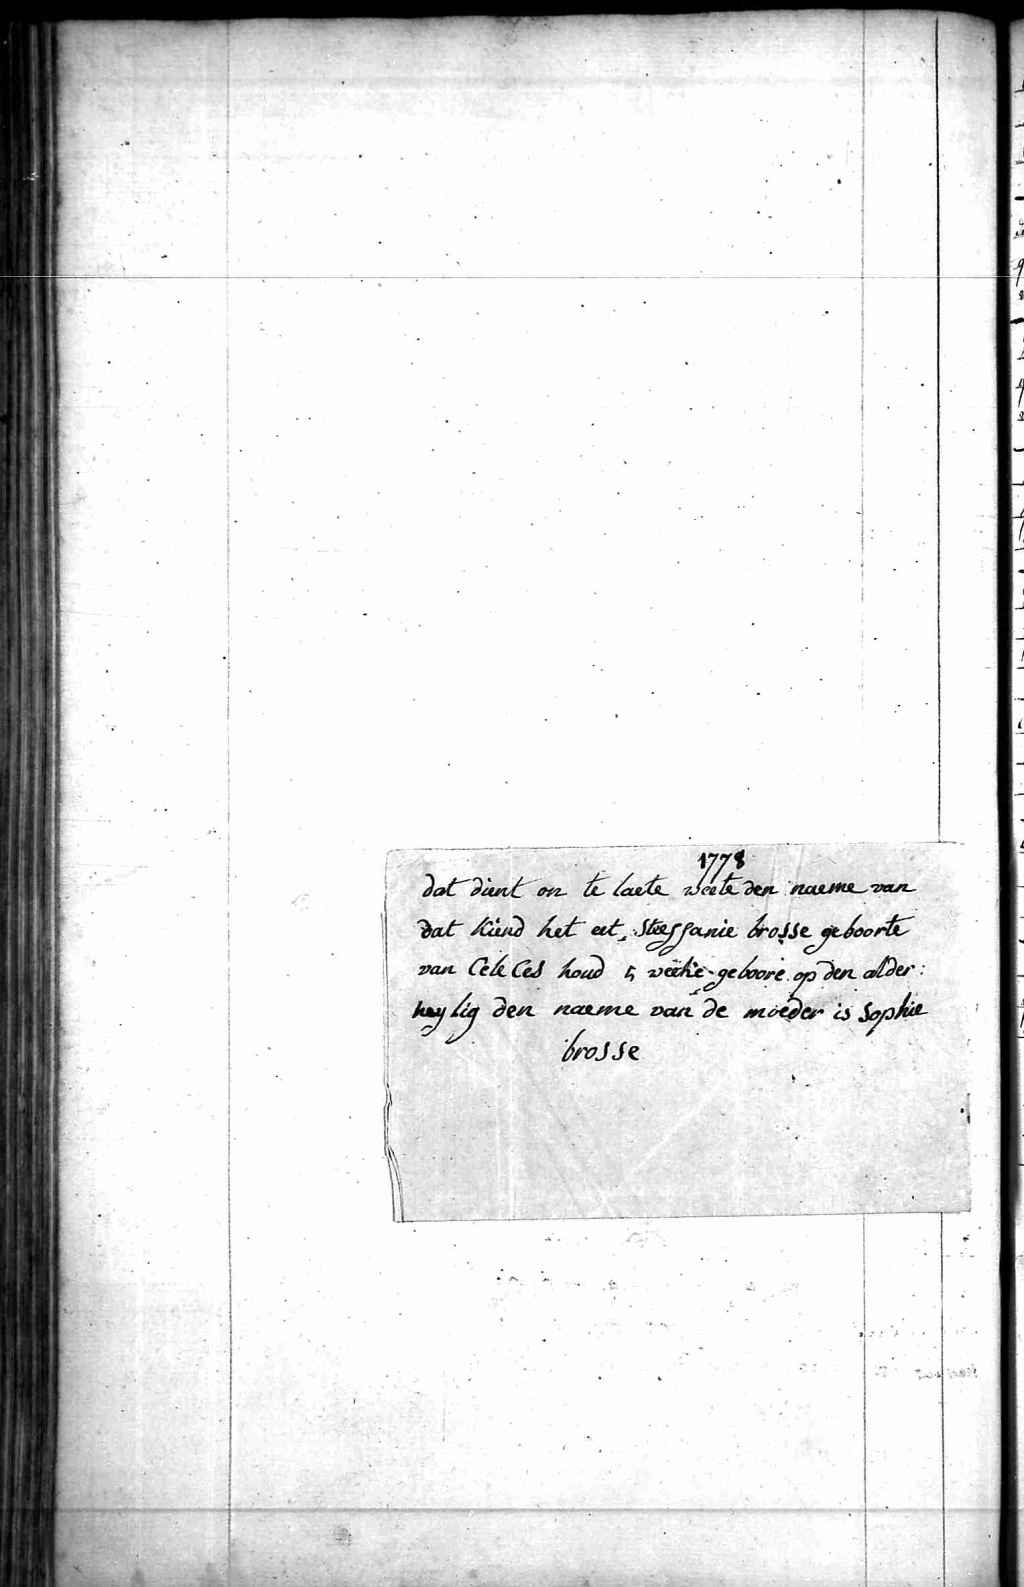 1778
dat dient on te laete weete den naeme van
dat kiend het eet, steeffanie brosse geboorte
van Cele Ces houd 5 weeke geboore op den alder:
heylig den naeme van de moeder is Sophie
brosse